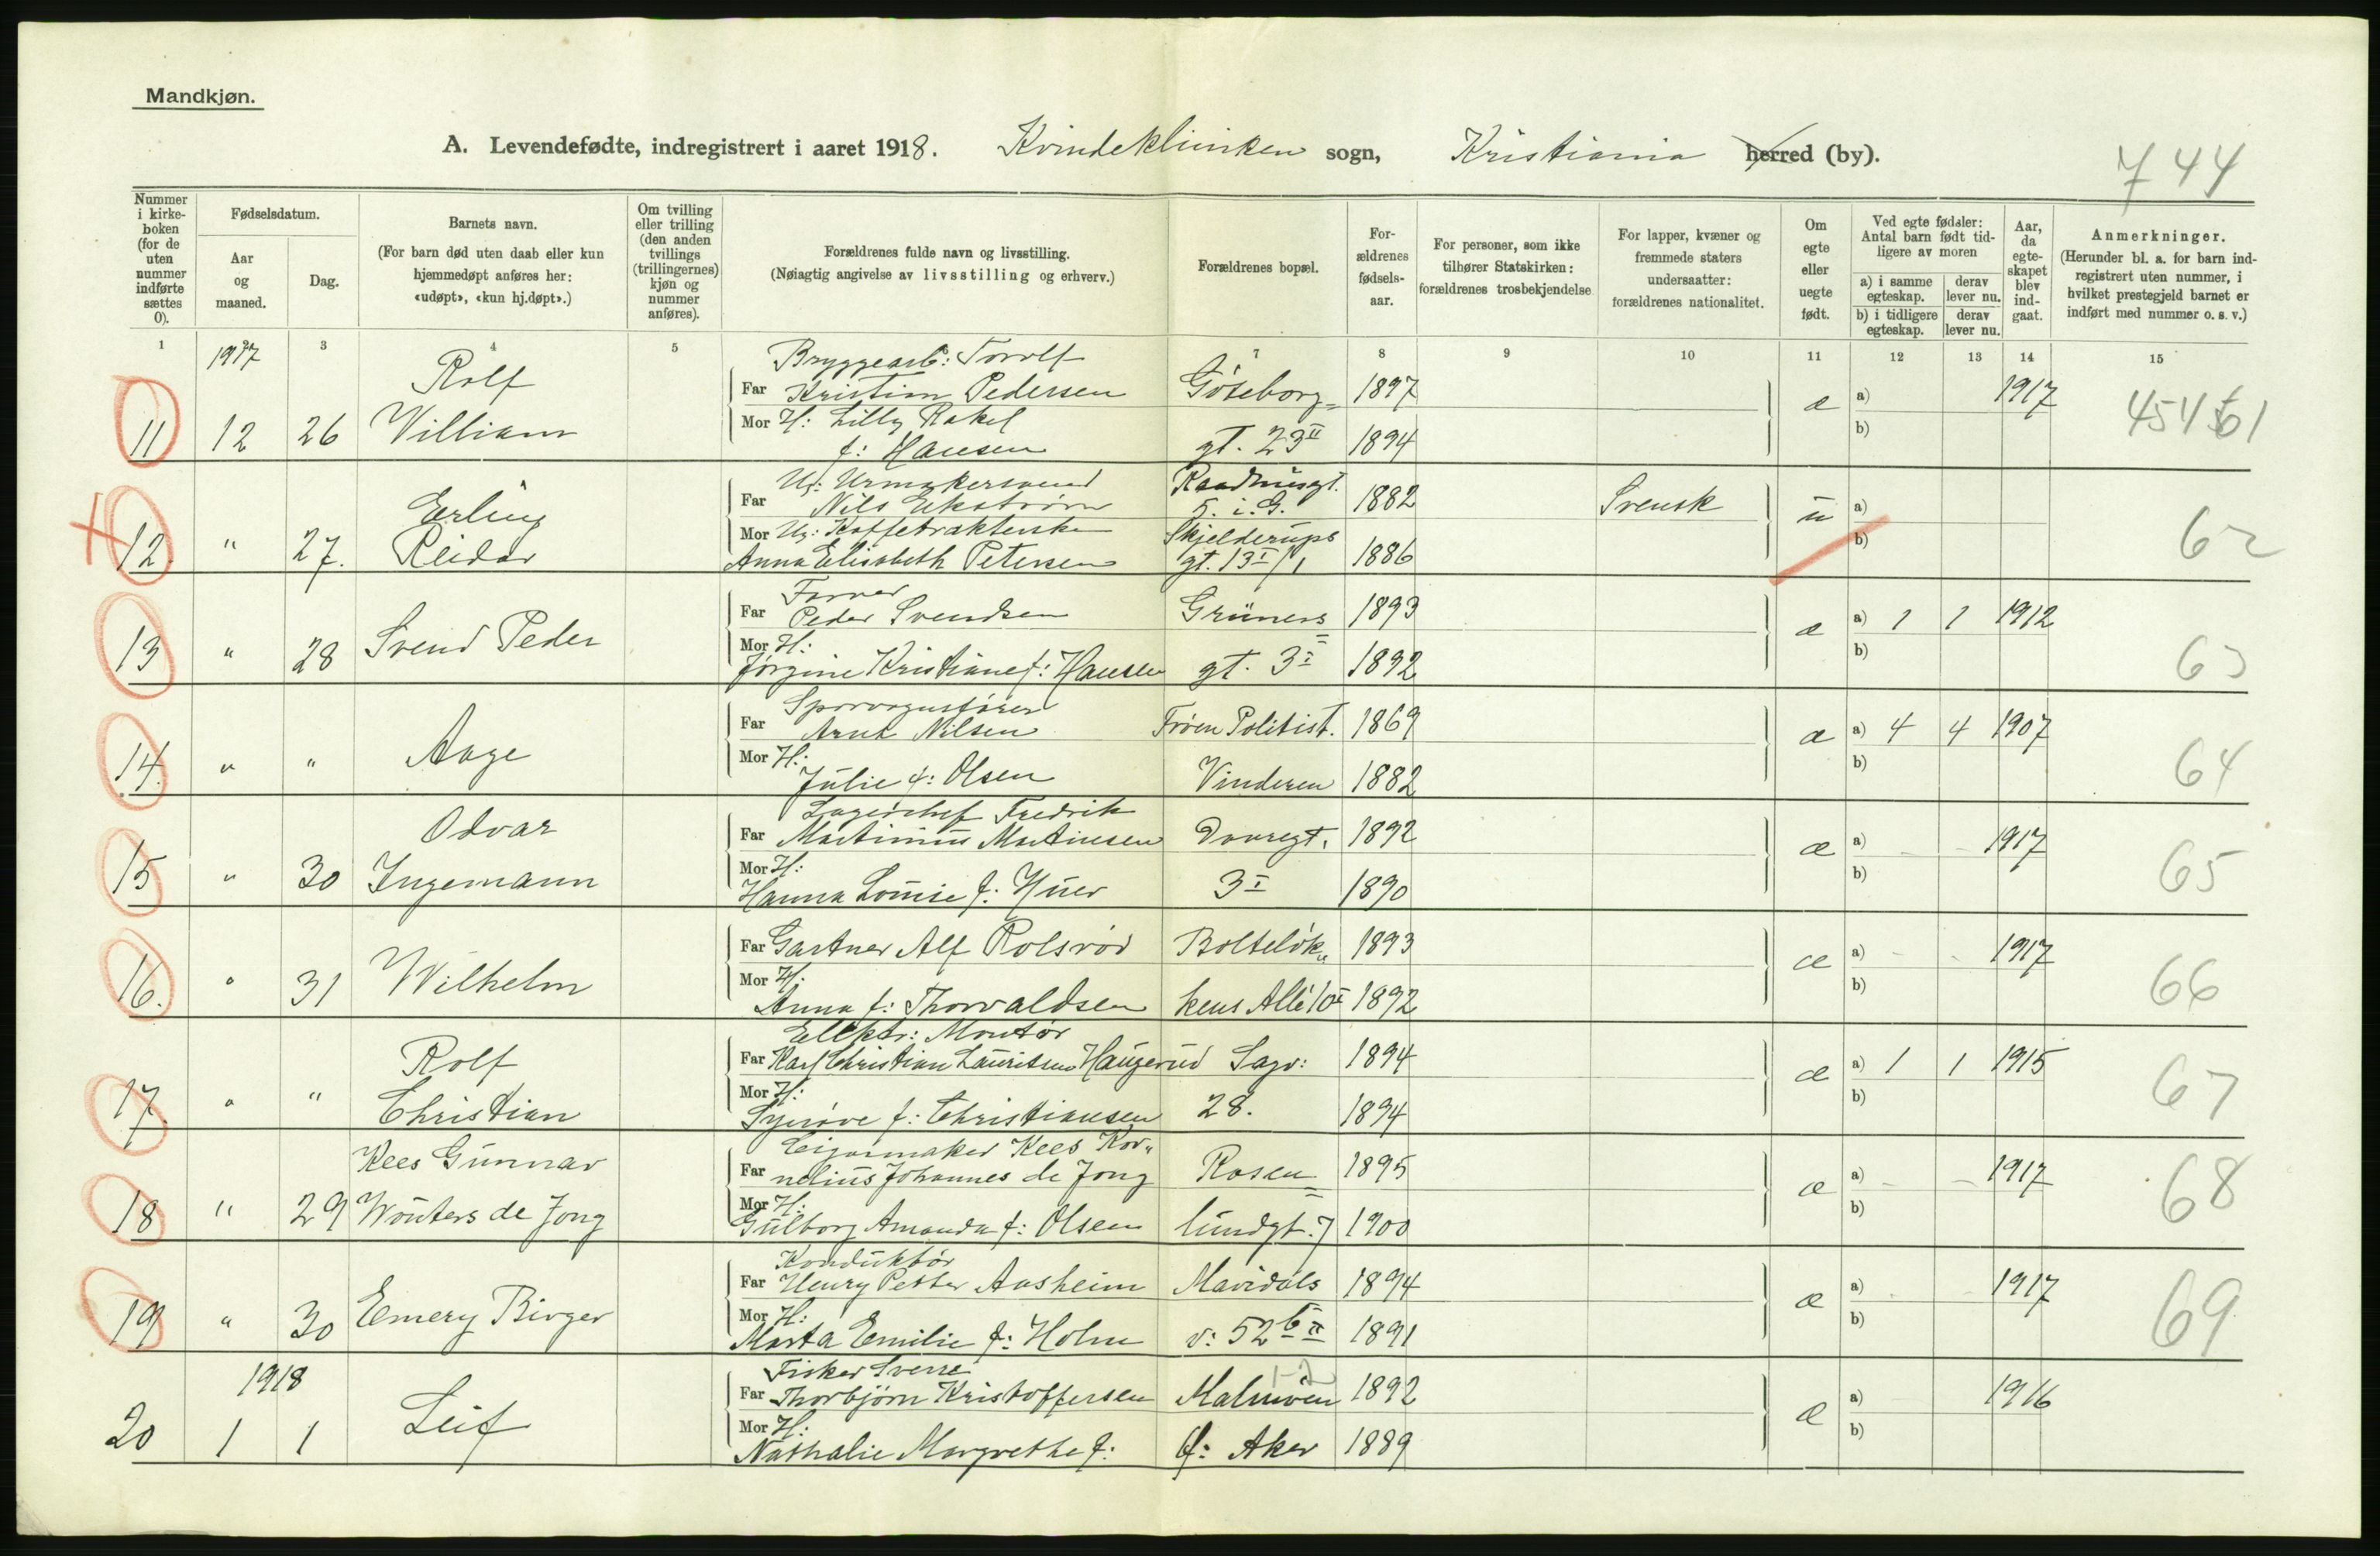 Mandkjøn.
A. Levendefødte, indregistrert i aaret 1918. Kvindeklinikken sogn, Kristiania herred (by).
744
Nummer i kirke-boken (for de uten nummer indførte sættes 0).
Fødselsdatum.
Aar og maaned.
Dag.
Barnets navn.
(For barn død uten daab eller kun hjemmedøpt anføres her: «udøpt», «kun hj.døpt».)
Om tvilling eller trilling (den anden tvillings (trillingernes) kjøn og nummer anføres).
Forældrenes fulde navn og livsstilling.
(Nøiagtig angivelse av livsstilling og erhverv.)
Forældrenes bopæl.
For-ældrenes fødsels-aar.
For personer, som ikke tilhører Statskirken: forældrenes trosbekjendelse
For lapper, kvæner og fremmede staters undersaatter: forældrenes nationalitet.
Om egte eller uegte født.
Ved egte fødsler: Antal barn født tid-ligere av moren
a) i samme egteskap.
derav lever nu.
b) i tidligere egteskap.
derav lever nu.
Aar, da egte-skapet blev ind-gaat.
Anmerkninger.
(Herunder bl. a. for barn ind-registrert uten nummer, i hvilket prestegjeld barnet er indført med nummer o. s. v.)
1 3 4 5 7 8 9 10 11 12 13 14 15
1917
Bryggearb: Torolf
Rolf Far Kristian Pedersen Göteborg= 1897 æ a) 1917
11 12 26 William Mor H: Lilly Rakel gt. 23 II 1894 b) 45461
f: Hansen
U: Urmakersvend Raadhusgt.
Erling Far Nils Ekström 5. i. G. 1882 Svensk u a)
Mor U: Kaffetrakterske Skjelderups
12 " 27. Reidar Anna Elisabeth Petersen gt. 13 I/1 1886 b) 62
Farver
Far Peder Svendsen Grüners= 1893 æ a) 1 1 1912
13 " 28 Svend Peder Mor H:
Jörgine Kristiane f: Hansen gt. 3 I 1892 b) 63
Sporvognsförer
Far Arnt Nilsen Fröen Politist. 1869 æ a) 4 4 1907
14. " " Aage Mor H:
Julie f: Olsen Vinderen 1882 b) 64
Lagerchef Fredrik
Odvar Far Martinius Martinsen Dovregt. 1892 æ a) - - 1917
15 " 30 Ingemann Mor H:
Hanna Louise f: 3 I 1890 b) 65
Far Gartner Alf Rolsröd Bolteløk" 1893 æ a) - - 1917
16. " 31 Wilhelm Mor H:
Anna f: Thorvaldsen kens Allé 10 I 1892 b) 66
Elektr: Montör
Rolf Far Karl Christian Lauritsen Haugerud Sagv: 1894 æ a) 1 1 1915
17. " " Christian Mor H:
Synöve f: Christiansen 28. 1894 b) 67
Cigarmaker Kees Kor"
Kees Gunnar Far nelius Johannes de Jong Rosen= 1895 æ a) - - 1917
18 " 29 Wouters de Jong Mor H:
Gulborg Amanda f: Olsen lundgt. 7 1900 b) 68
Konduktör
Far Henry Petter Aasheim Maridals 1894 æ a) - - 1917
19 " 30 Emery Birger Mor H:
Marta Emilie f: Holm v: 52 b II 1891 b) 69
1918 Fisker Sverre 1-2
Far Thorbjörn Kristoffersen Malmöen 1892 æ a) 1916
20 1 1 Leif Mor H:
Nathalie Margrethe f: Ö: Aker 1889 b)